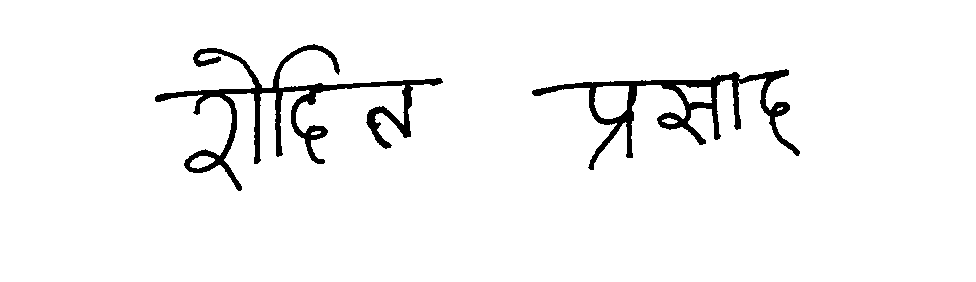 रोदित प्रसाद